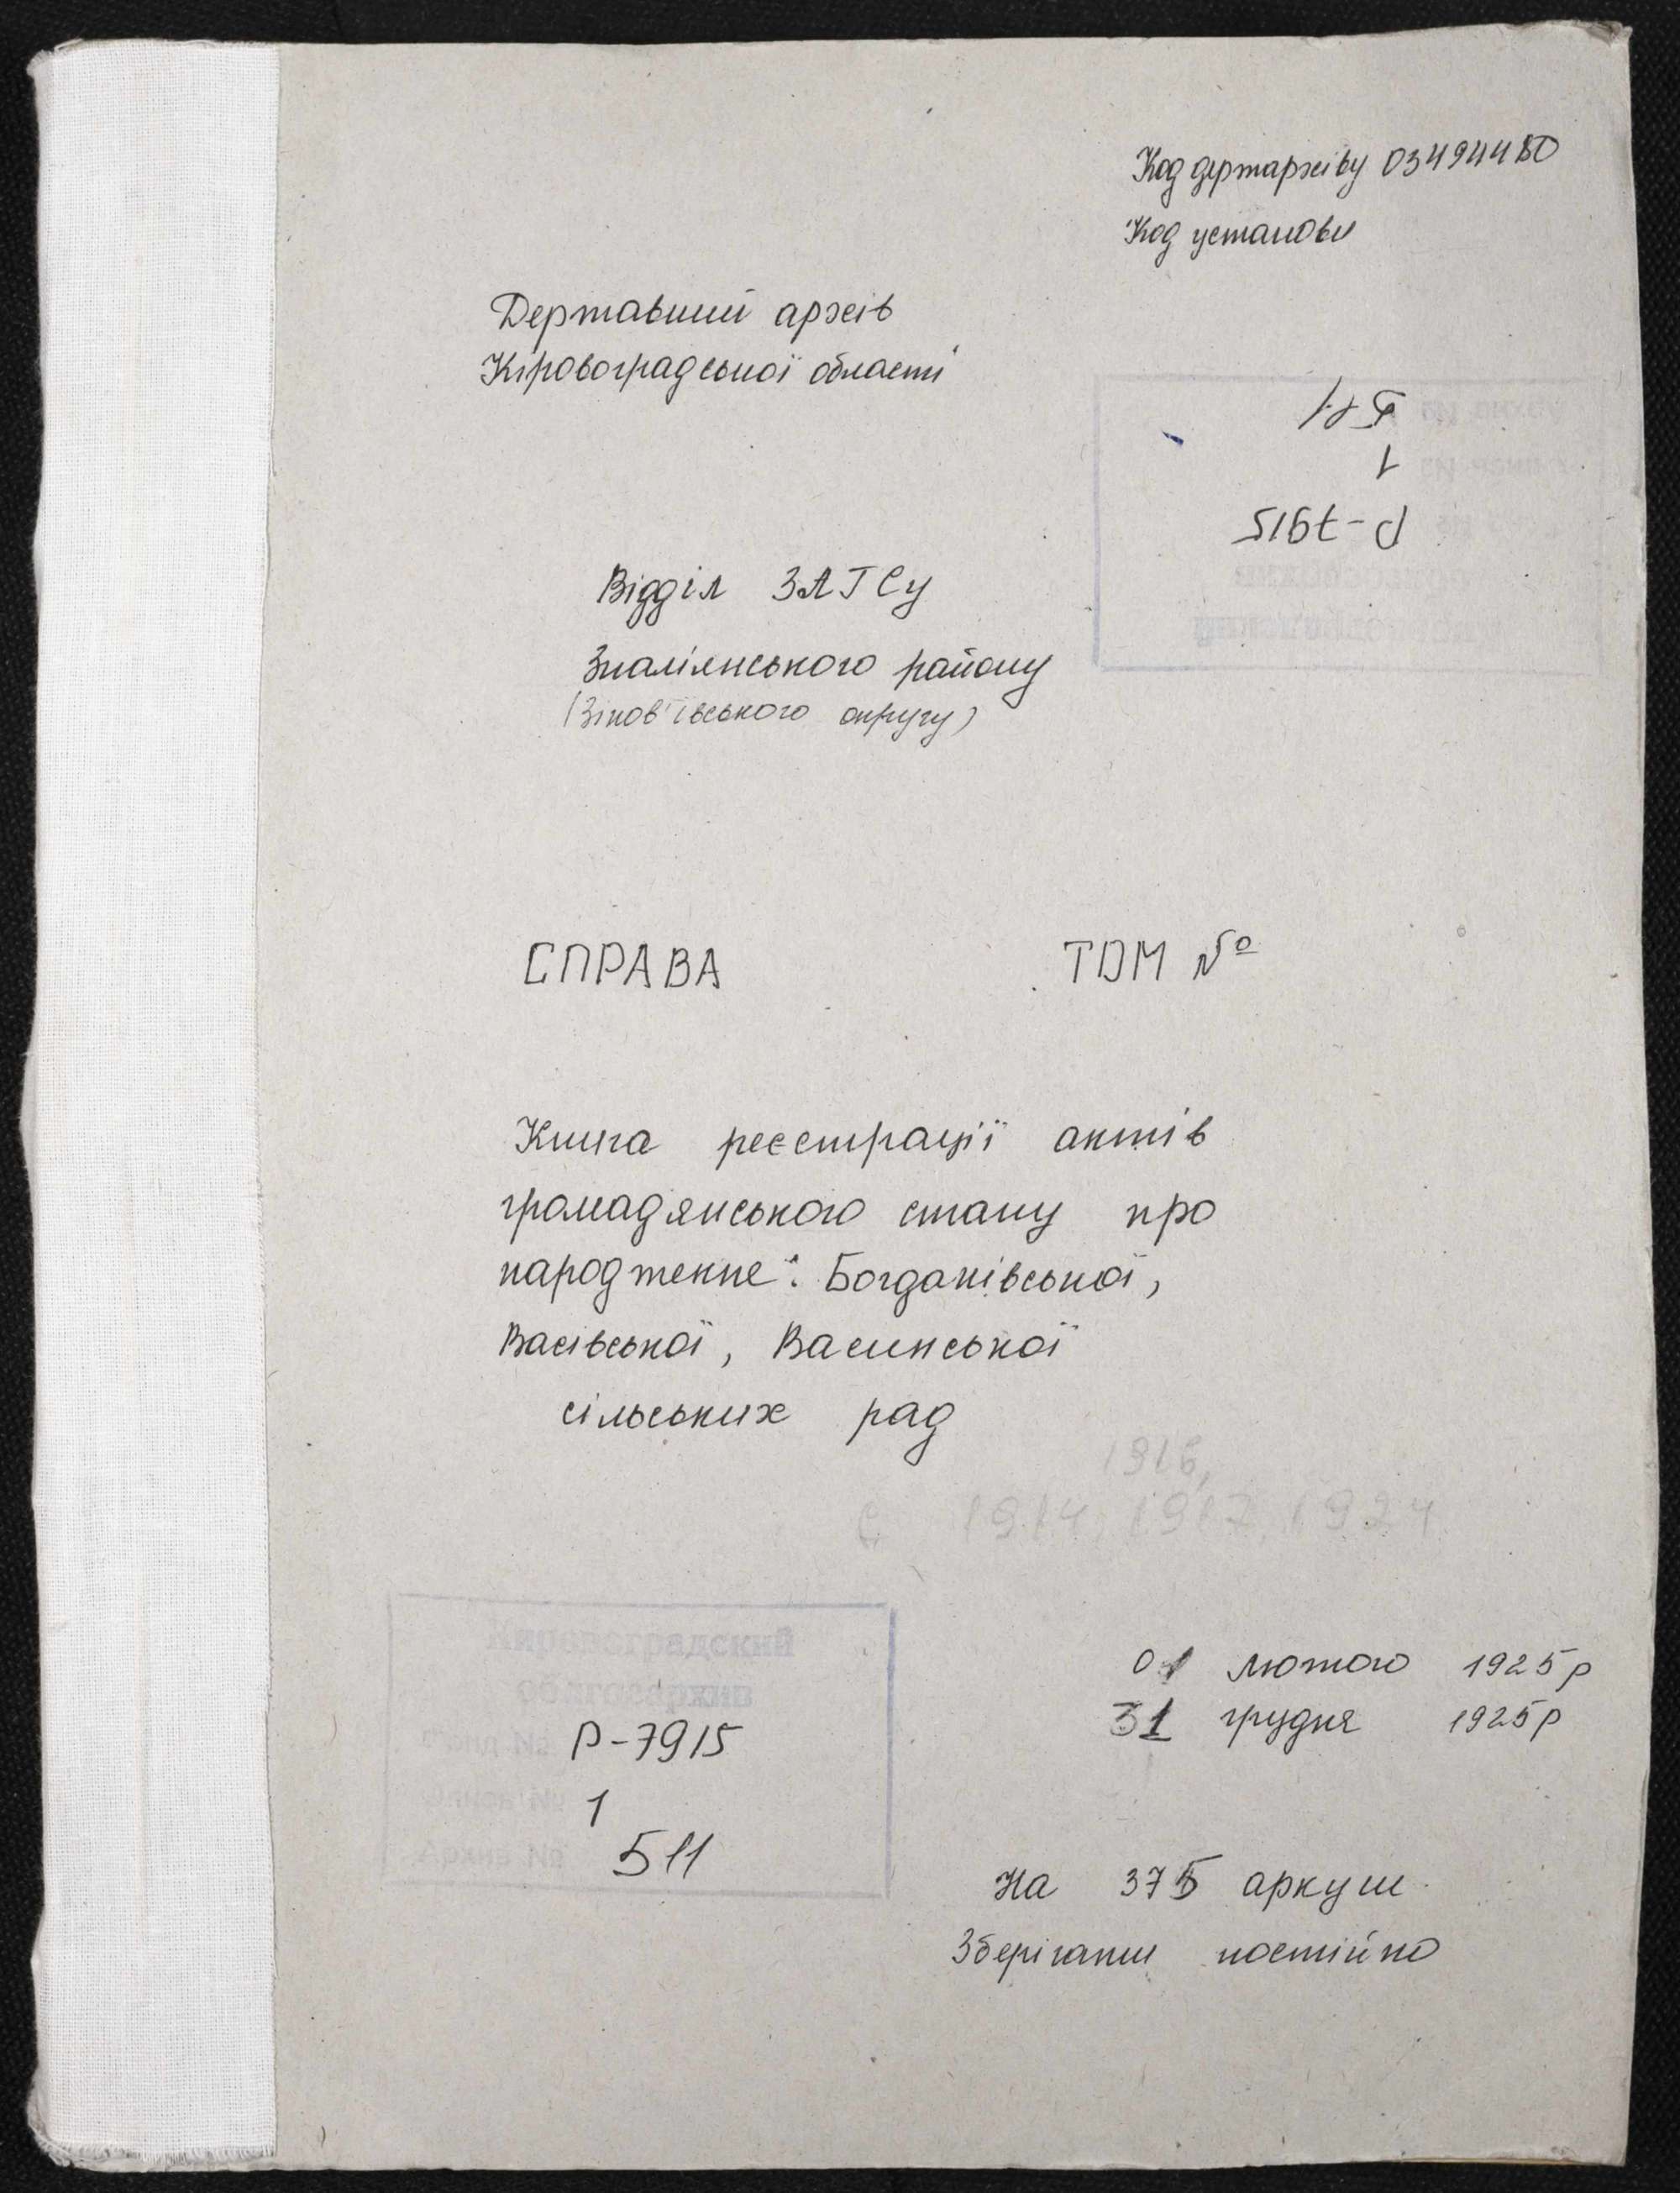 Код держархіву 03494480
Код установи
Державний архів
Кіровоградської області
511
1
Р-7915
Відділ ЗАГСу
Знам'янського району
(Зінов'ївського округу)
СПРАВА ТОМ №
Книга реєстрації актів
громадянського стану про
народження: Богданівської,
Васівської, Васинської
сільських рад
1916,
с 1914, 1917, 1924
01 лютого 1925р
31 грудня 1925р
Кировоградский
облгосархив
Фонд № Р-7915
Опись № 1
Архив № 511
На 375 аркуш
Зберігати постійно